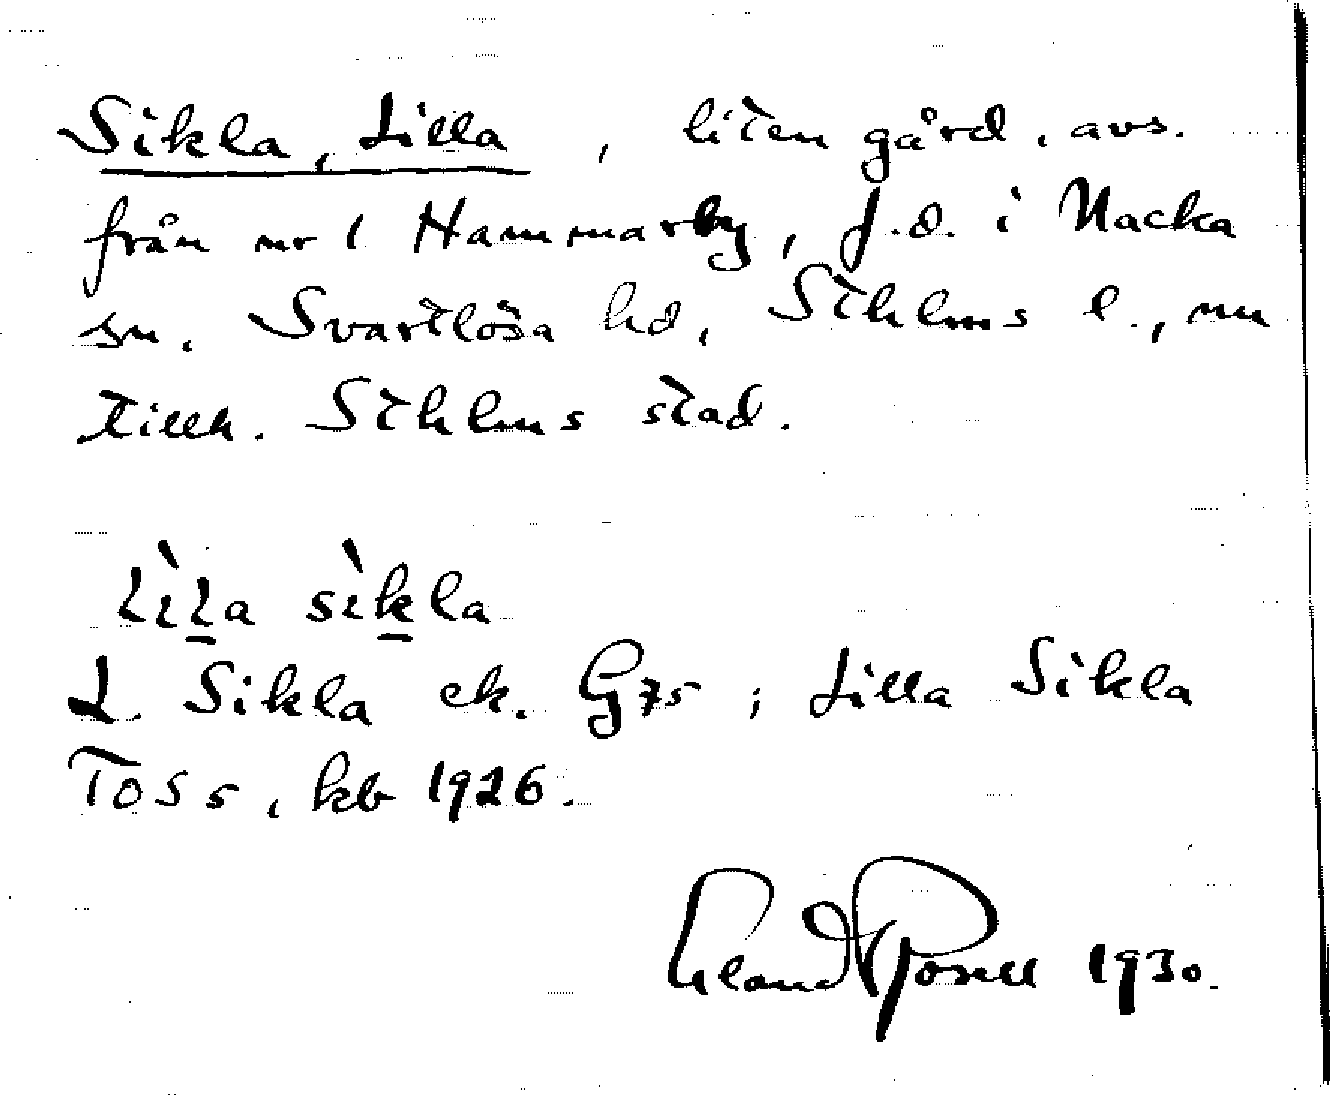 Sikla, Lilla, liten gård, avs.
från nr 1 Hammarby, f.d. i Nacka
sn. Svartlösa hd, Sthlms l., nu
tillh. Sthlms stad.
Lìl̲a sìk̲la
L. Sikla ek. G75; Lilla Sikla
TOSS, kb 1926.
1930.